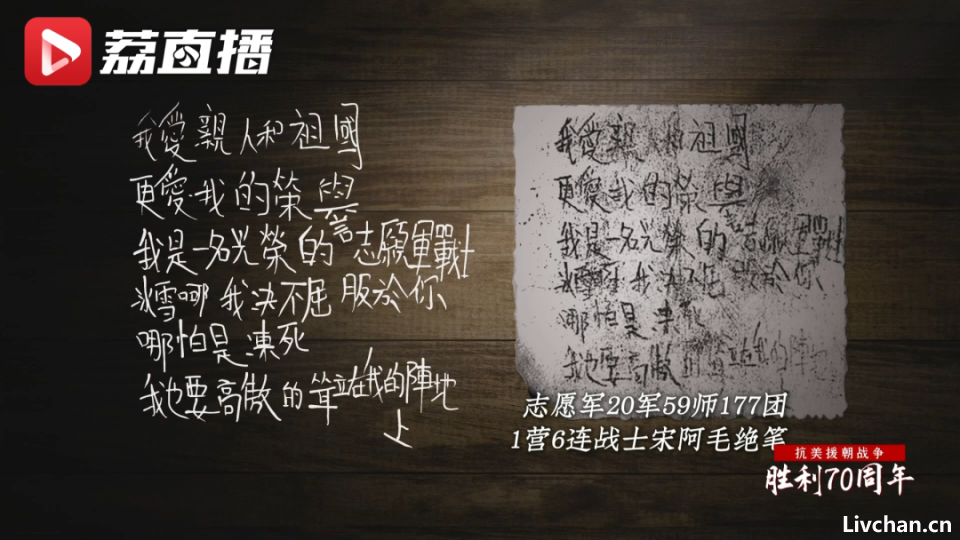 荔直播
我愛親人和祖國
更愛我的榮譽
我是一名光榮的志願軍戰士
冰雪哪我决不屈服於你
哪怕是凍死
我也要高傲的耸立在我的陣地
上
我愛親人和祖國
更愛我的榮譽
我是一名光榮的志願軍戰士
冰雪哪我决不屈服於你
哪怕是凍死
我也要高傲的耸立在我的陣地
志愿军20军59师177团
1营6连战士宋阿毛绝笔
抗美援朝战争
胜利70周年
Livchan.cn